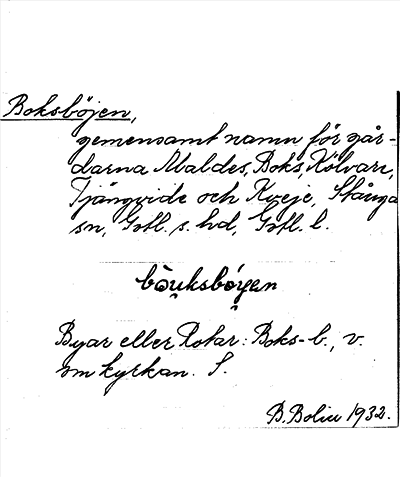 Boksböjen,
gemensamt namn för går-
darna Maldes, Boks, Kölvars,
Tjängvide och Kveje, Stånga
sn, Gotl. s. hd, Gotl. l.
bo̯uksbo̯yen
Byar eller Rotar: Boks-b., v.
om kyrkan. S.
B. Bolin 1932.